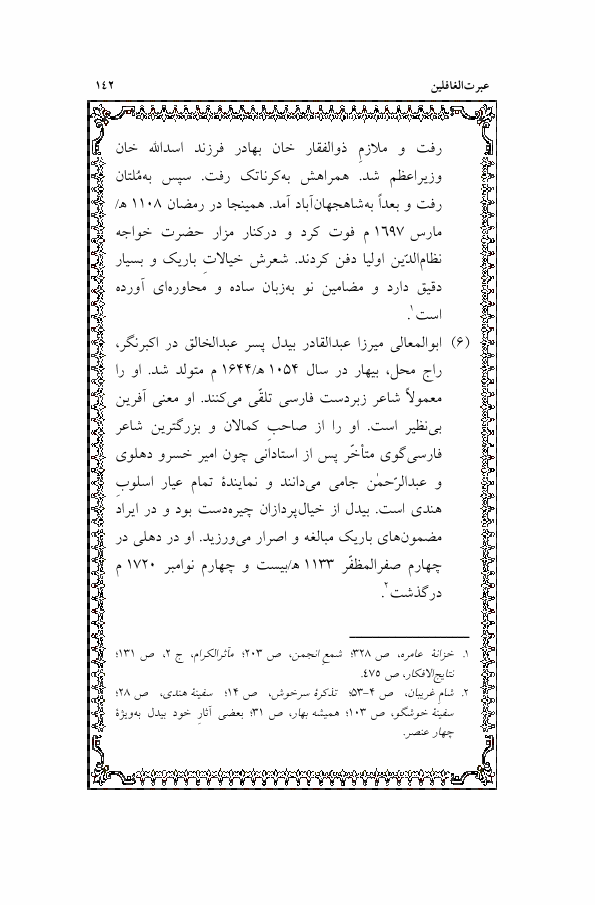 عبرت‌الغافلین ۱۴۲
رفت و ملازمِ ذوالفقار خان بهادر فرزند اسدالله خان
وزیراعظم شد. همراهش به‌کرناتک رفت. سپس به‌مُلتان
رفت و بعداً به‌شاهجهان‌آباد آمد. همینجا در رمضان ۱۱۰۸ ه‍/
مارس ۱۶۹۷ م فوت کرد و درکنار مزار حضرت خواجه
نظام‌الدّین اولیا دفن کردند. شعرش خیالاتِ باریک و بسیار
دقیق دارد و مضامین نو به‌زبان ساده و محاوره‌ای آورده
است۱.
(۶) ابوالمعالی میرزا عبدالقادر بیدل پسر عبدالخالق در اکبرنگر،
راج محل، بیهار در سال ۱۰۵۴ ه‍/۱۶۴۴ م متولد شد. او را
معمولاً شاعر زبردست فارسی تلقّی می‌کنند. او معنی آفرین
بی‌نظیر است. او را از صاحبِ کمالان و بزرگترین شاعر
فارسی‌گوی متأخّر پس از استادانی چون امیر خسرو دهلوی
و عبدالرّحمٰن جامی می‌دانند و نمایندۀ تمام عیار اسلوبِ
هندی است. بیدل از خیال‌پردازان چیره‌دست بود و در ایراد
مضمون‌های باریک مبالغه و اصرار می‌ورزید. او در دهلی در
چهارم صفرالمظفّر ۱۱۳۳ ه‍/بیست و چهارم نوامبر ۱۷۲۰ م
درگذشت۲.
۱. خزانۀ عامره، ص ۳۲۸؛ شمعِ انجمن، ص ۲۰۳؛ مآثرالکرام، ج ۲، ص ۱۳۱؛
نتایج‌الافکار، ص ۴۷۵.
۲. شامِ غریبان، ص ۴-۵۳؛ تذکرۀ سرخوش، ص ۱۴؛ سفینۀ هندی، ص ۲۸؛
سفینۀ خوشگو، ص ۱۰۳؛ همیشه بهار، ص ۳۱؛ بعضی آثارِ خود بیدل به‌ویژۀ
چهار عنصر.